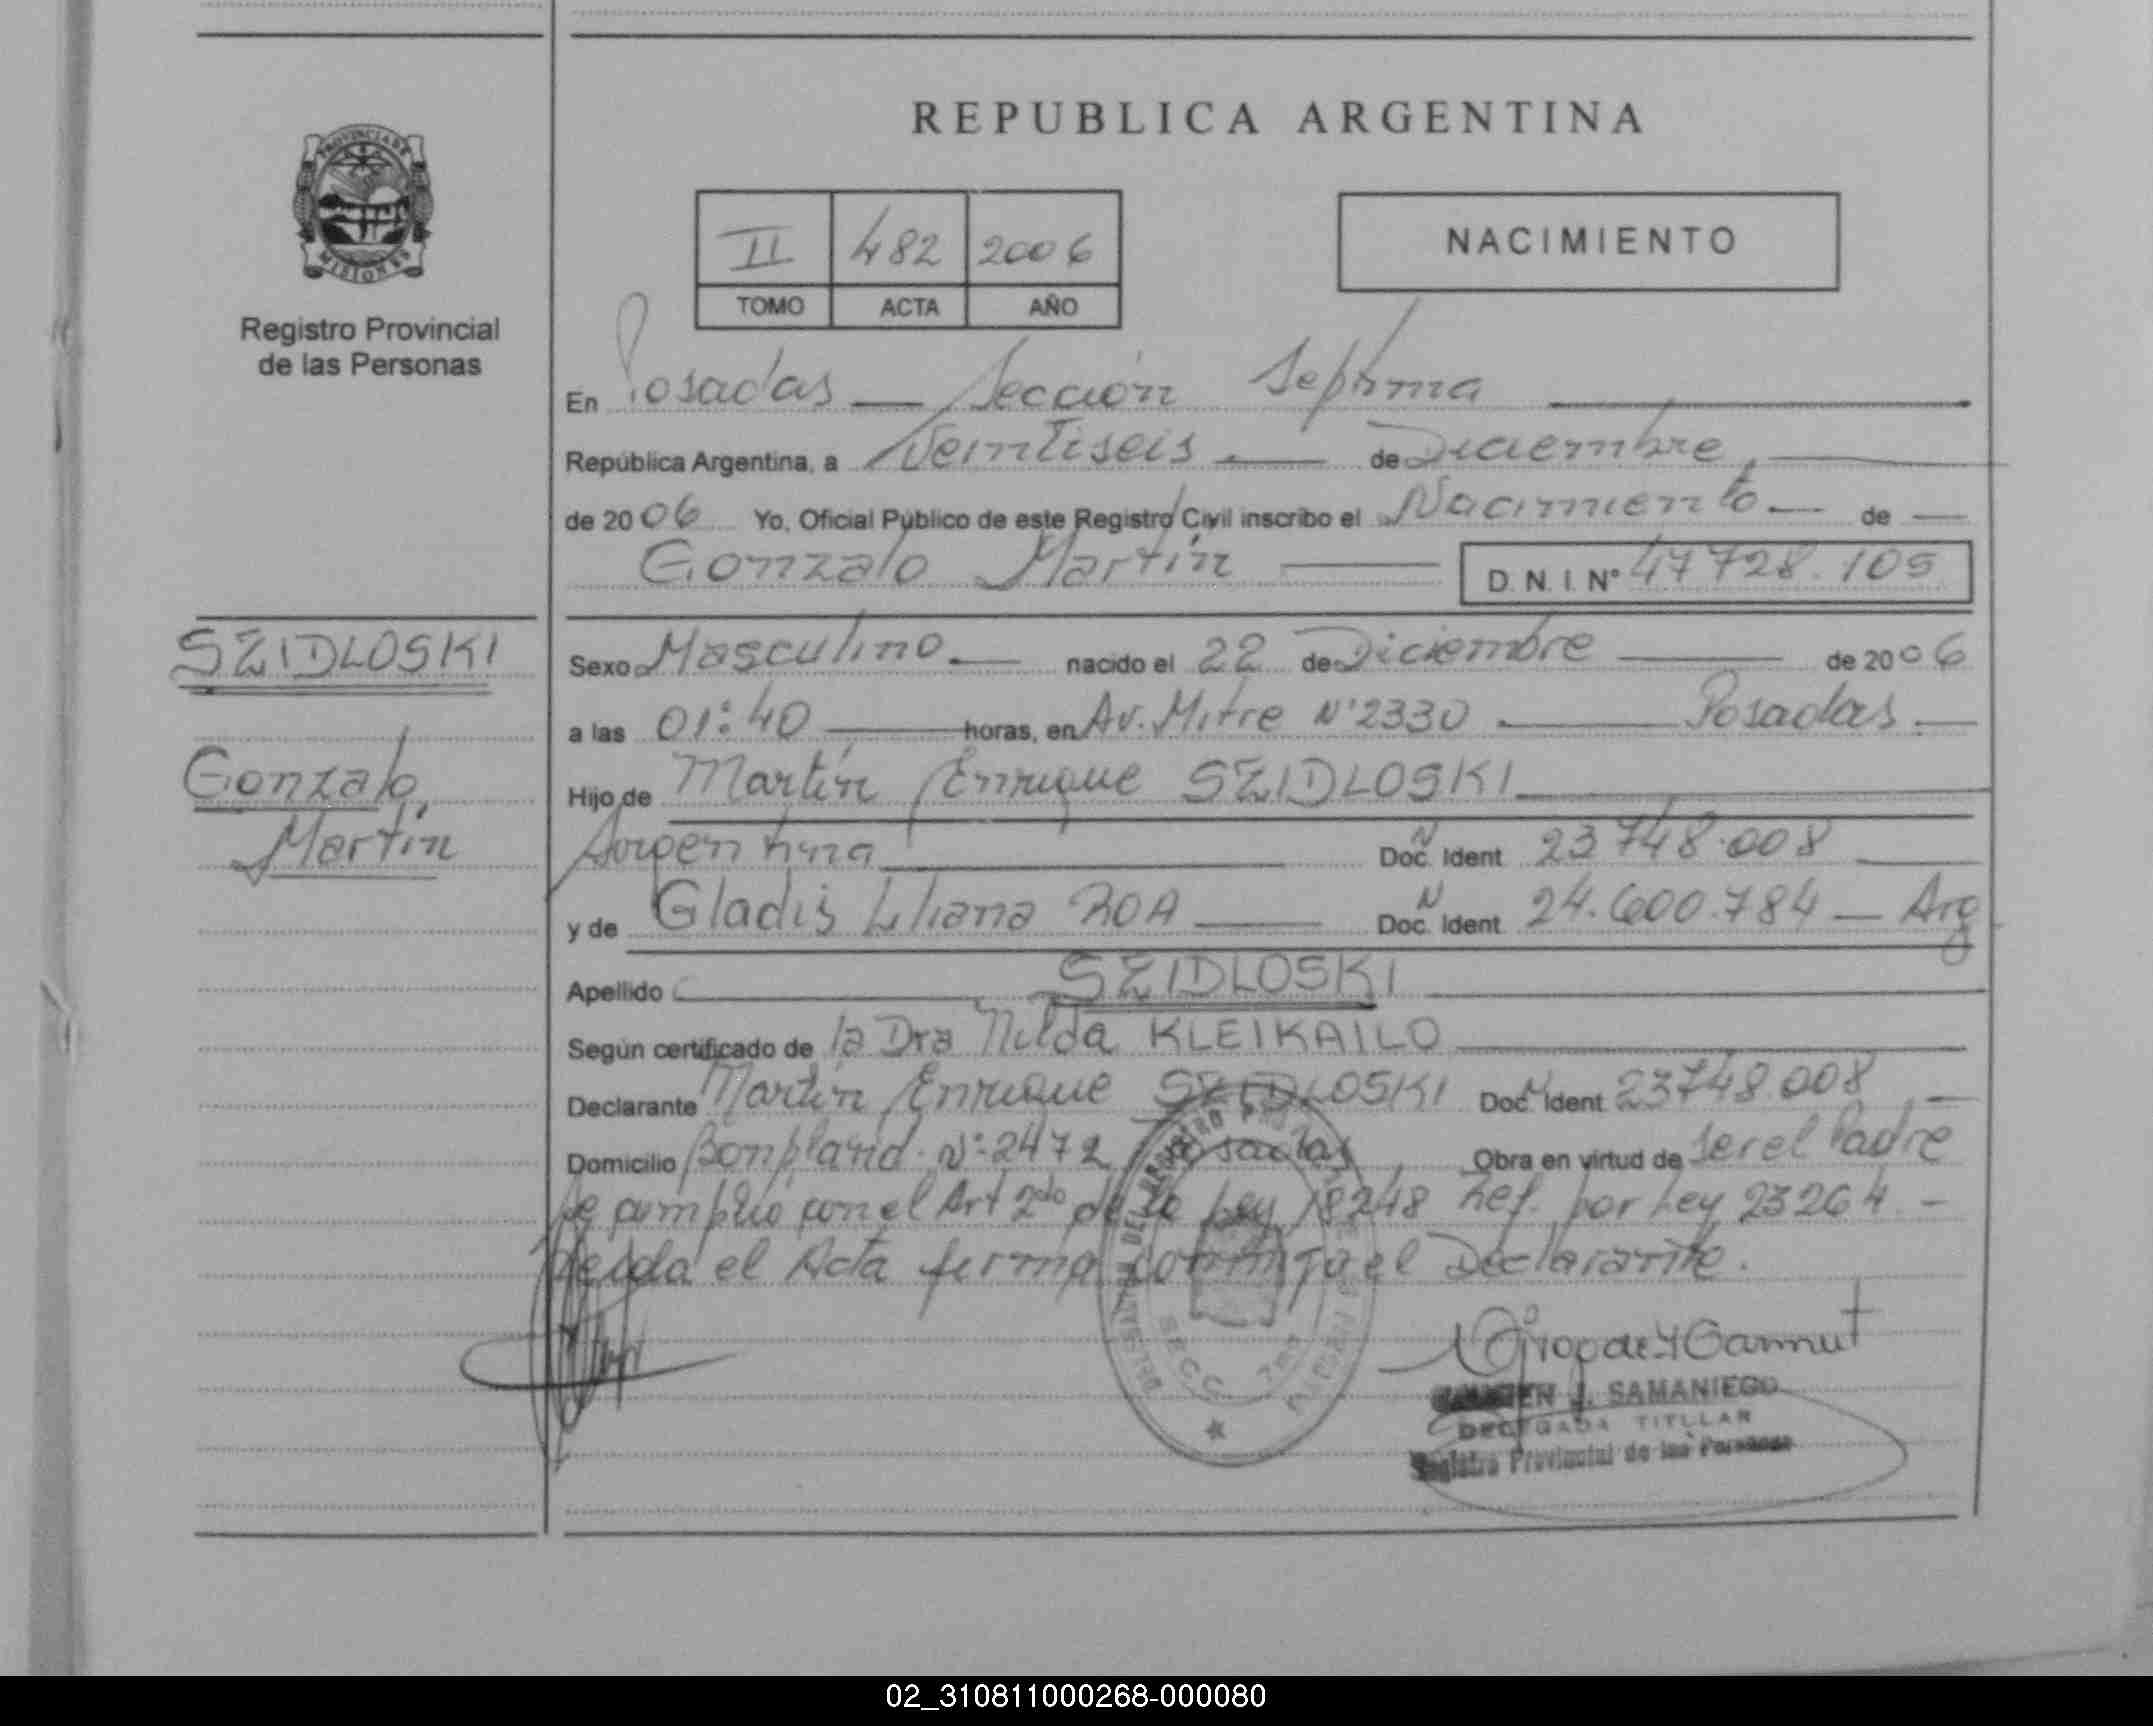 REPUBLICA ARGENTINA
PROVINCIA DE
MISIONES
Registro Provincial
de las Personas
II 482 2006
TOMO ACTA AÑO
NACIMIENTO
En Posadas — Sección Septima
República Argentina, a Veintiseis — de Diciembre,
de 2006 Yo, Oficial Público de este Registro Civil inscribo el Nacimiento — de —
Gonzalo Martín — D. N. I. N° 47 728. 105
SZIDLOSKI
Gonzalo,
Martín
Sexo Masculino — nacido el 22 de Diciembre — de 2006
a las 01:40 — horas, en Av. Mitre N° 2330 — Posadas. —
Hijo de Martín Enrique SZIDLOSKI
Argentina — Doc. Ident N 23 748.008 —
y de Gladis Liliana ROA — Doc. Ident N 24.600.784 — Arg
Apellido SZIDLOSKI
Según certificado de la Dra Nilda KLEIKAILO
Declarante Martín Enrique SZIDLOSKI Doc. Ident N 23748.008, —
Domicilio Bonpland. N°. 2472 Posadas, Obra en virtud de ser el Padre
Se cumplió con el Art 2do de la Ley 18248 Ref. por Ley 23264 -
Leida el Acta firma conmigo el Declarante.
SECC. 7ma
J. SAMANIEGO
DELEGADA TITULAR
Registro Provincial de las Personas
02_310811000268-000080